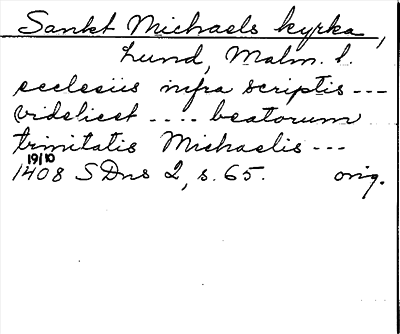 Sankt Michaels kyrka,
Lund, Malm. l.
ecclesiis infra scriptis ---
videlicet .... beatorum
trinitatis Michaelis ---
19/10
1408 SDns 2, s. 65. orig.